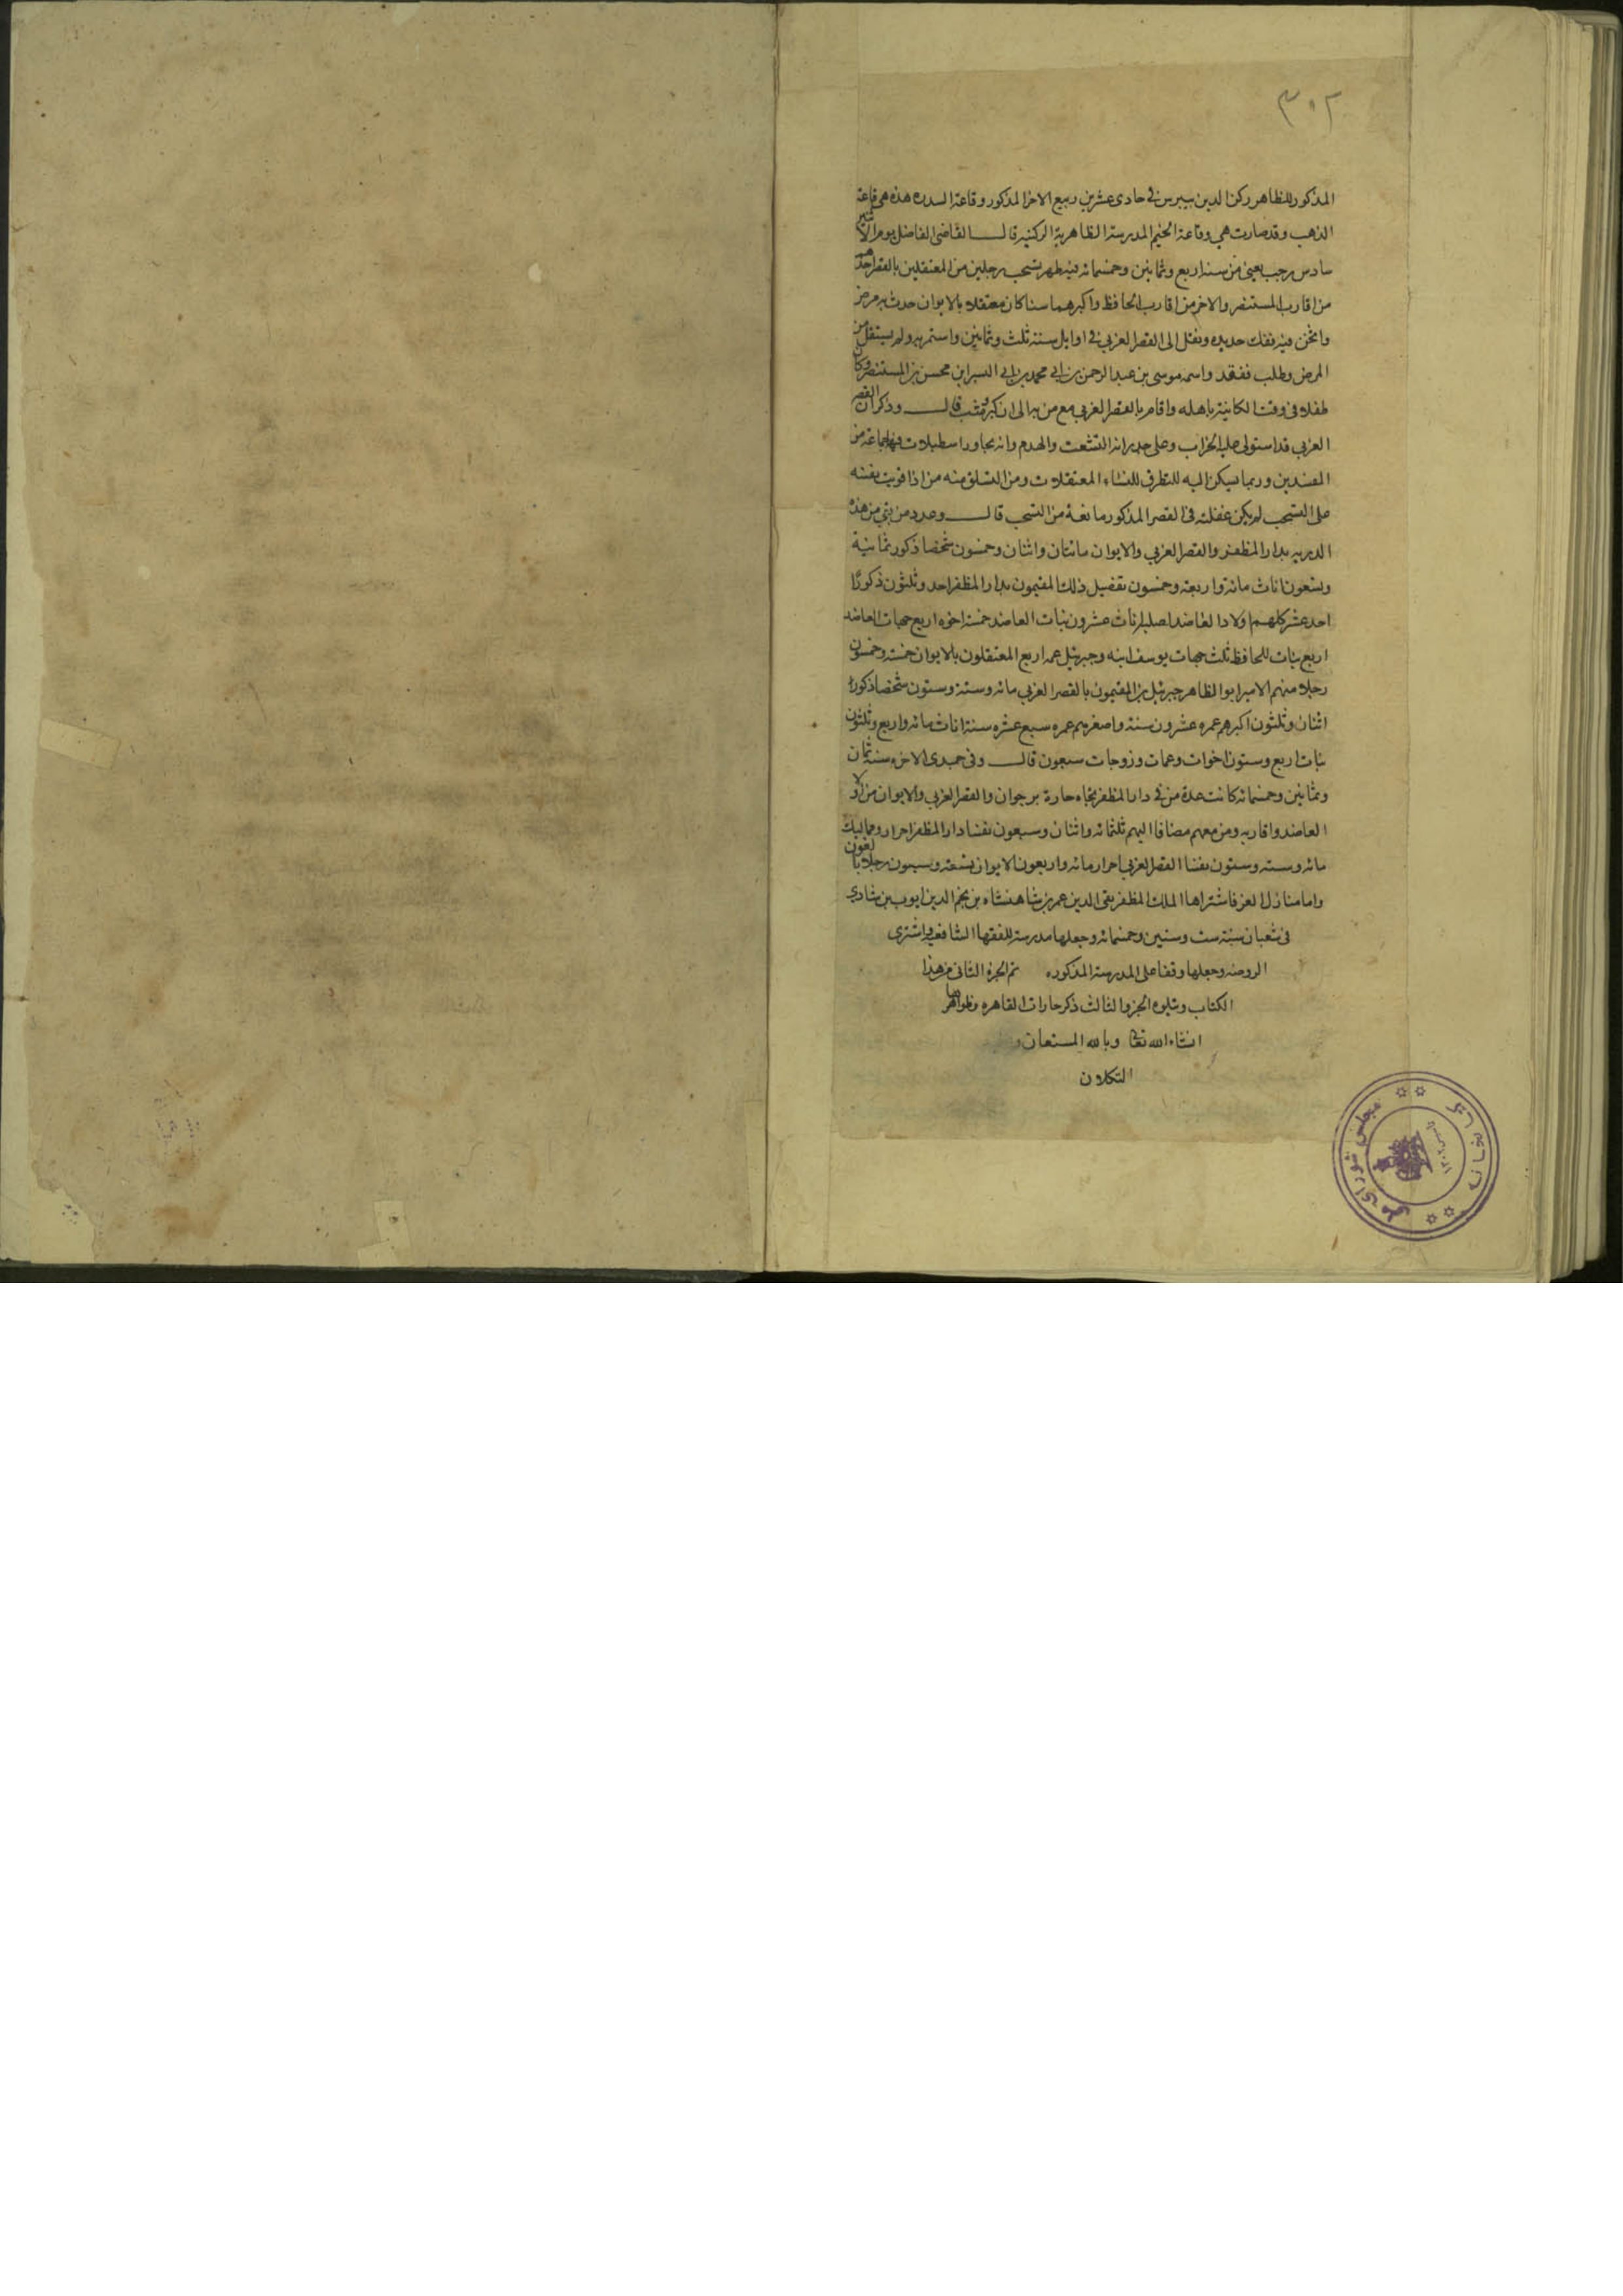 ٣٠٢
المذكور للظاهر ركن الدين بيبرس فى حادى عشرين ربيع الاخر المذكور وقاعة السدره هذه هى قاعة
الذهب وقد صارت هي وقاعة الخيم المدرسة الظاهرية الركنيه قال القاضى الفاضل يوم الاثنين
سادس رجب يعنى من سنة اربع وثمانين وخمسمائه فيه ظهر تسحب رجلين من المعتقلين بالقصر احدهما
من اقارب المستنصر والاخر من اقارب الحافظ واكبرهما سنا كان معتقلا بالايوان حدث به مرض
واثخن فيه ففك حديده ونقل الى القصر الغربي فى اوايل سنة ثلث وثمانين واستمر به ولم يستقل من
المرض وطلب ففقد واسمه موسى بن عبد الرحمن بن ابي محمد بن ابي اليسر ابن محسن بن المستنصر وكان
طفلا فى وقت الكاينة باهله واقام بالقصر الغربي مع من به الى ان كبر وشب قال وذكر ان القصر
الغربي قد استولى عليه الخراب وعلى جدرانه التشعث والهدم وانه يجاور اسطبلات فيها جماعة من
المفسدين وربما يسكن اليه للتطرق للنساء المعتقلات ومن التسلق منه من اذا قويت نفسه
على التسحب لم يكن عقلته فى القصر المذكور مانعة من التسحب قال وعدد من بقى من هذه
الذريه بدار المظفر والقصر الغربي والايوان مائتان واثنان وخمسون شخصا ذكور ثمانية
وتسعون اناث مائة واربعة وخمسون تفصيل ذلك المقيمون بدار المظفر احد وثلثون ذكورًا
احد عشر كلهم اولاد العاضد لصلبه اناث عشرون بنات العاضد خمسة اخوه اربع جهات العاضد
اربع بنات للحافظ ثلث جهات يوسف ابنه وجبريل عمه اربع المعتقلون بالايوان خمسة وخمسون
رجلا منهم الامير ابو الظاهر جبريل بن المقيمون بالقصر الغربي مائه وستة وستون شخصا ذكورا
اثنان وثلثون اكبرهم عمره عشرون سنة واصغرهم عمره سبع عشره سنة اناث مائه واربع وثلثون
بنات اربع وستون اخوات وعمات وزوجات سبعون قال وفى جمدى الاخره سنة ثمان
وثمانين وخمسمائه كانت عدة من فى دار المظفر بتجاه حارة برجوان والقصر الغربي والايوان من اولاد
العاضد واقاربه ومن معهم مضافا اليهم ثلثمائه واثنان وسبعون نفسا دار المظفر احرار ومماليك
مائه وسته وستون نفسا القصر الغربي احرار مائه واربعون الايوان تسعه وسبعون رجلا بالغون
واما منازل العز فاشتراها الملك المظفر تقى الدين عمر بن شاهنشاه بن نجم الدين ايوب بن شادي
فى شعبان سنة ست وستين وخمسمائه وجعلها مدرسة للفقها الشافعيه واشترى
الروضه وجعلها وقفا على المدرسة المذكوره تم الجزء الثانى من هذا
الكتاب ويتلوه الجزو الثالث ذكر حارات القاهره وظواهرها
انشاء الله تعالى وبالله المستعان و
التكلان
كتابخانه
مجلس شوراى ملى